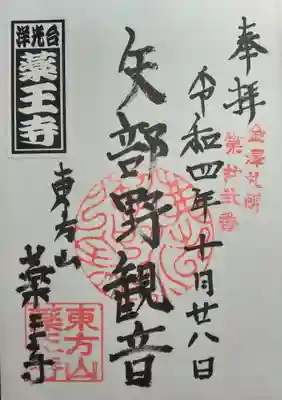 奉拝
令和四年十月廿八日
金澤札所
第廿弐番
矢部野観音
洋光台
薬王寺
東方山
薬王寺
東方山
薬王寺